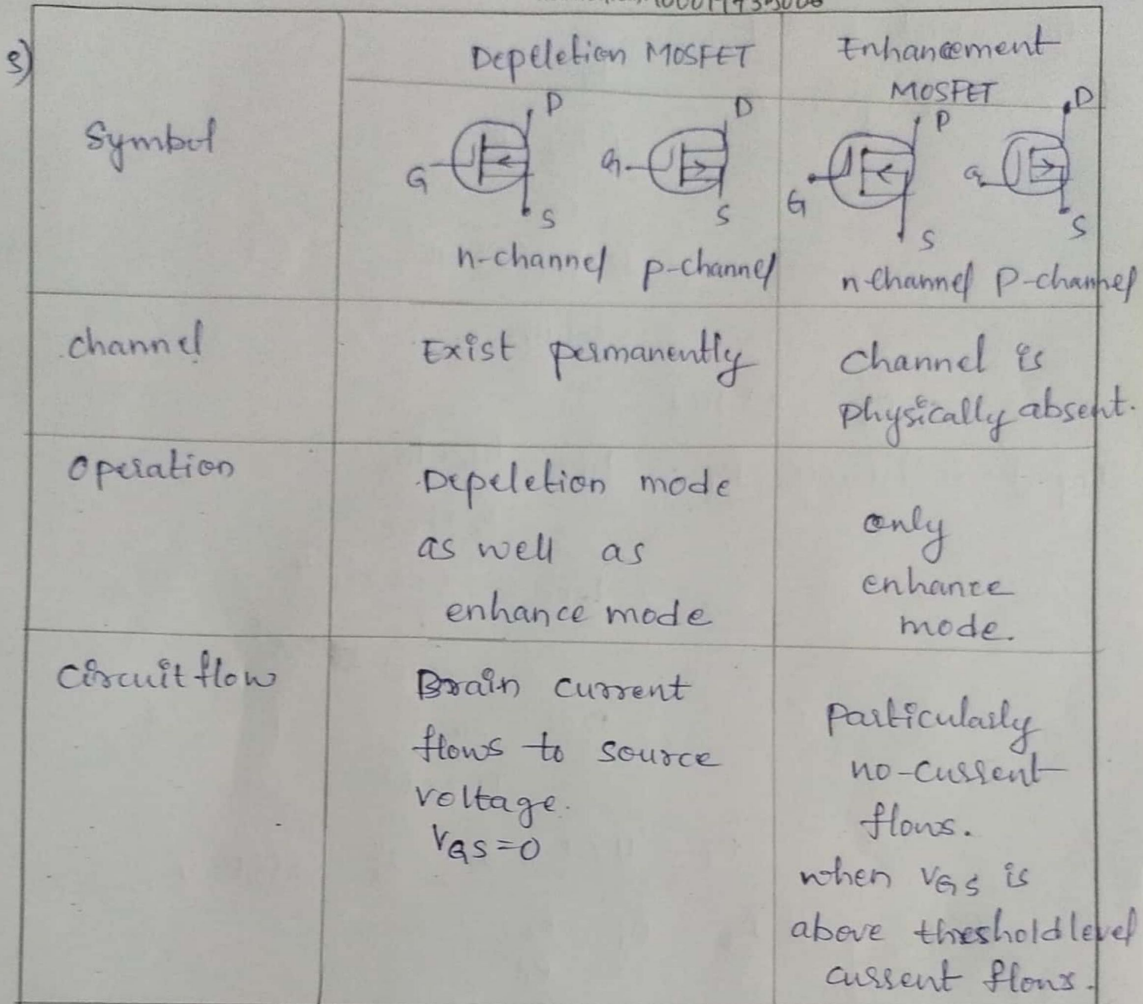 3)
Depeletion MOSFET
Enhancement
MOSFET
Symbol
D
G
S
D
G
S
D
G
S
D
G
S
n-channel p-channel
n-channel P-channel
channel
Exist permanently
Channel is
physically absent.
Operation
Depeletion mode
as well as
enhance mode
only
enhance
mode.
Circuit flow
Drain current
flows to source
voltage.
VGS=0
Particularly
no-current
flows.
when VGS is
above threshold level
current flows.